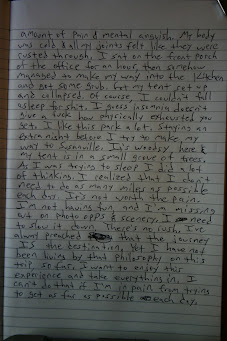 amount of pain & mental anguish. My body
was cold & all my joints felt like they were
rusted through. I sat on the front porch
of the office for an hour, then somehow
managed to make my way into the kitchen
and got some grub. Got my tent set up
and collapsed. Of course I couldn't fall
asleep for shit. I guess insomnia doesn't
give a fuck how physically exhausted you
get. I like this park a lot. Staying an
extra night before I try to make my
way to Susanville. It's woodsy here &
my tent is in a small grove of trees.
As I was trying to sleep I did a lot
of thinking. I realized that I don't
need to do as many miles as possible
each day. It's not worth the pain.
I'm not having fun and I'm missing
out on photo opps & scenery. I need
to slow it down. There's no rush. I've
always preached that the journey
IS the destination, yet I have not
been living by that philosophy on this
trip so far. I want to enjoy this
experience and take everything in. I
can't do that if I'm in pain from trying
to get as far as possible each day.